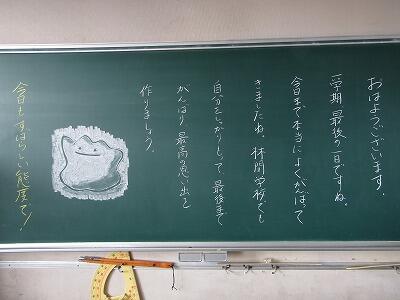 おはようございます。
一学期最後の一日ですね。
今日まで本当によくがんばって
きましたね。林間学校でも
自分をしっかりもって、最後まで
がんばり最高の思い出を
作りましょう。
今日もすばらしい態度で!